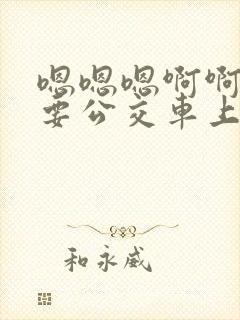 嗯嗯嗯啊啊
要公交車上
和永威